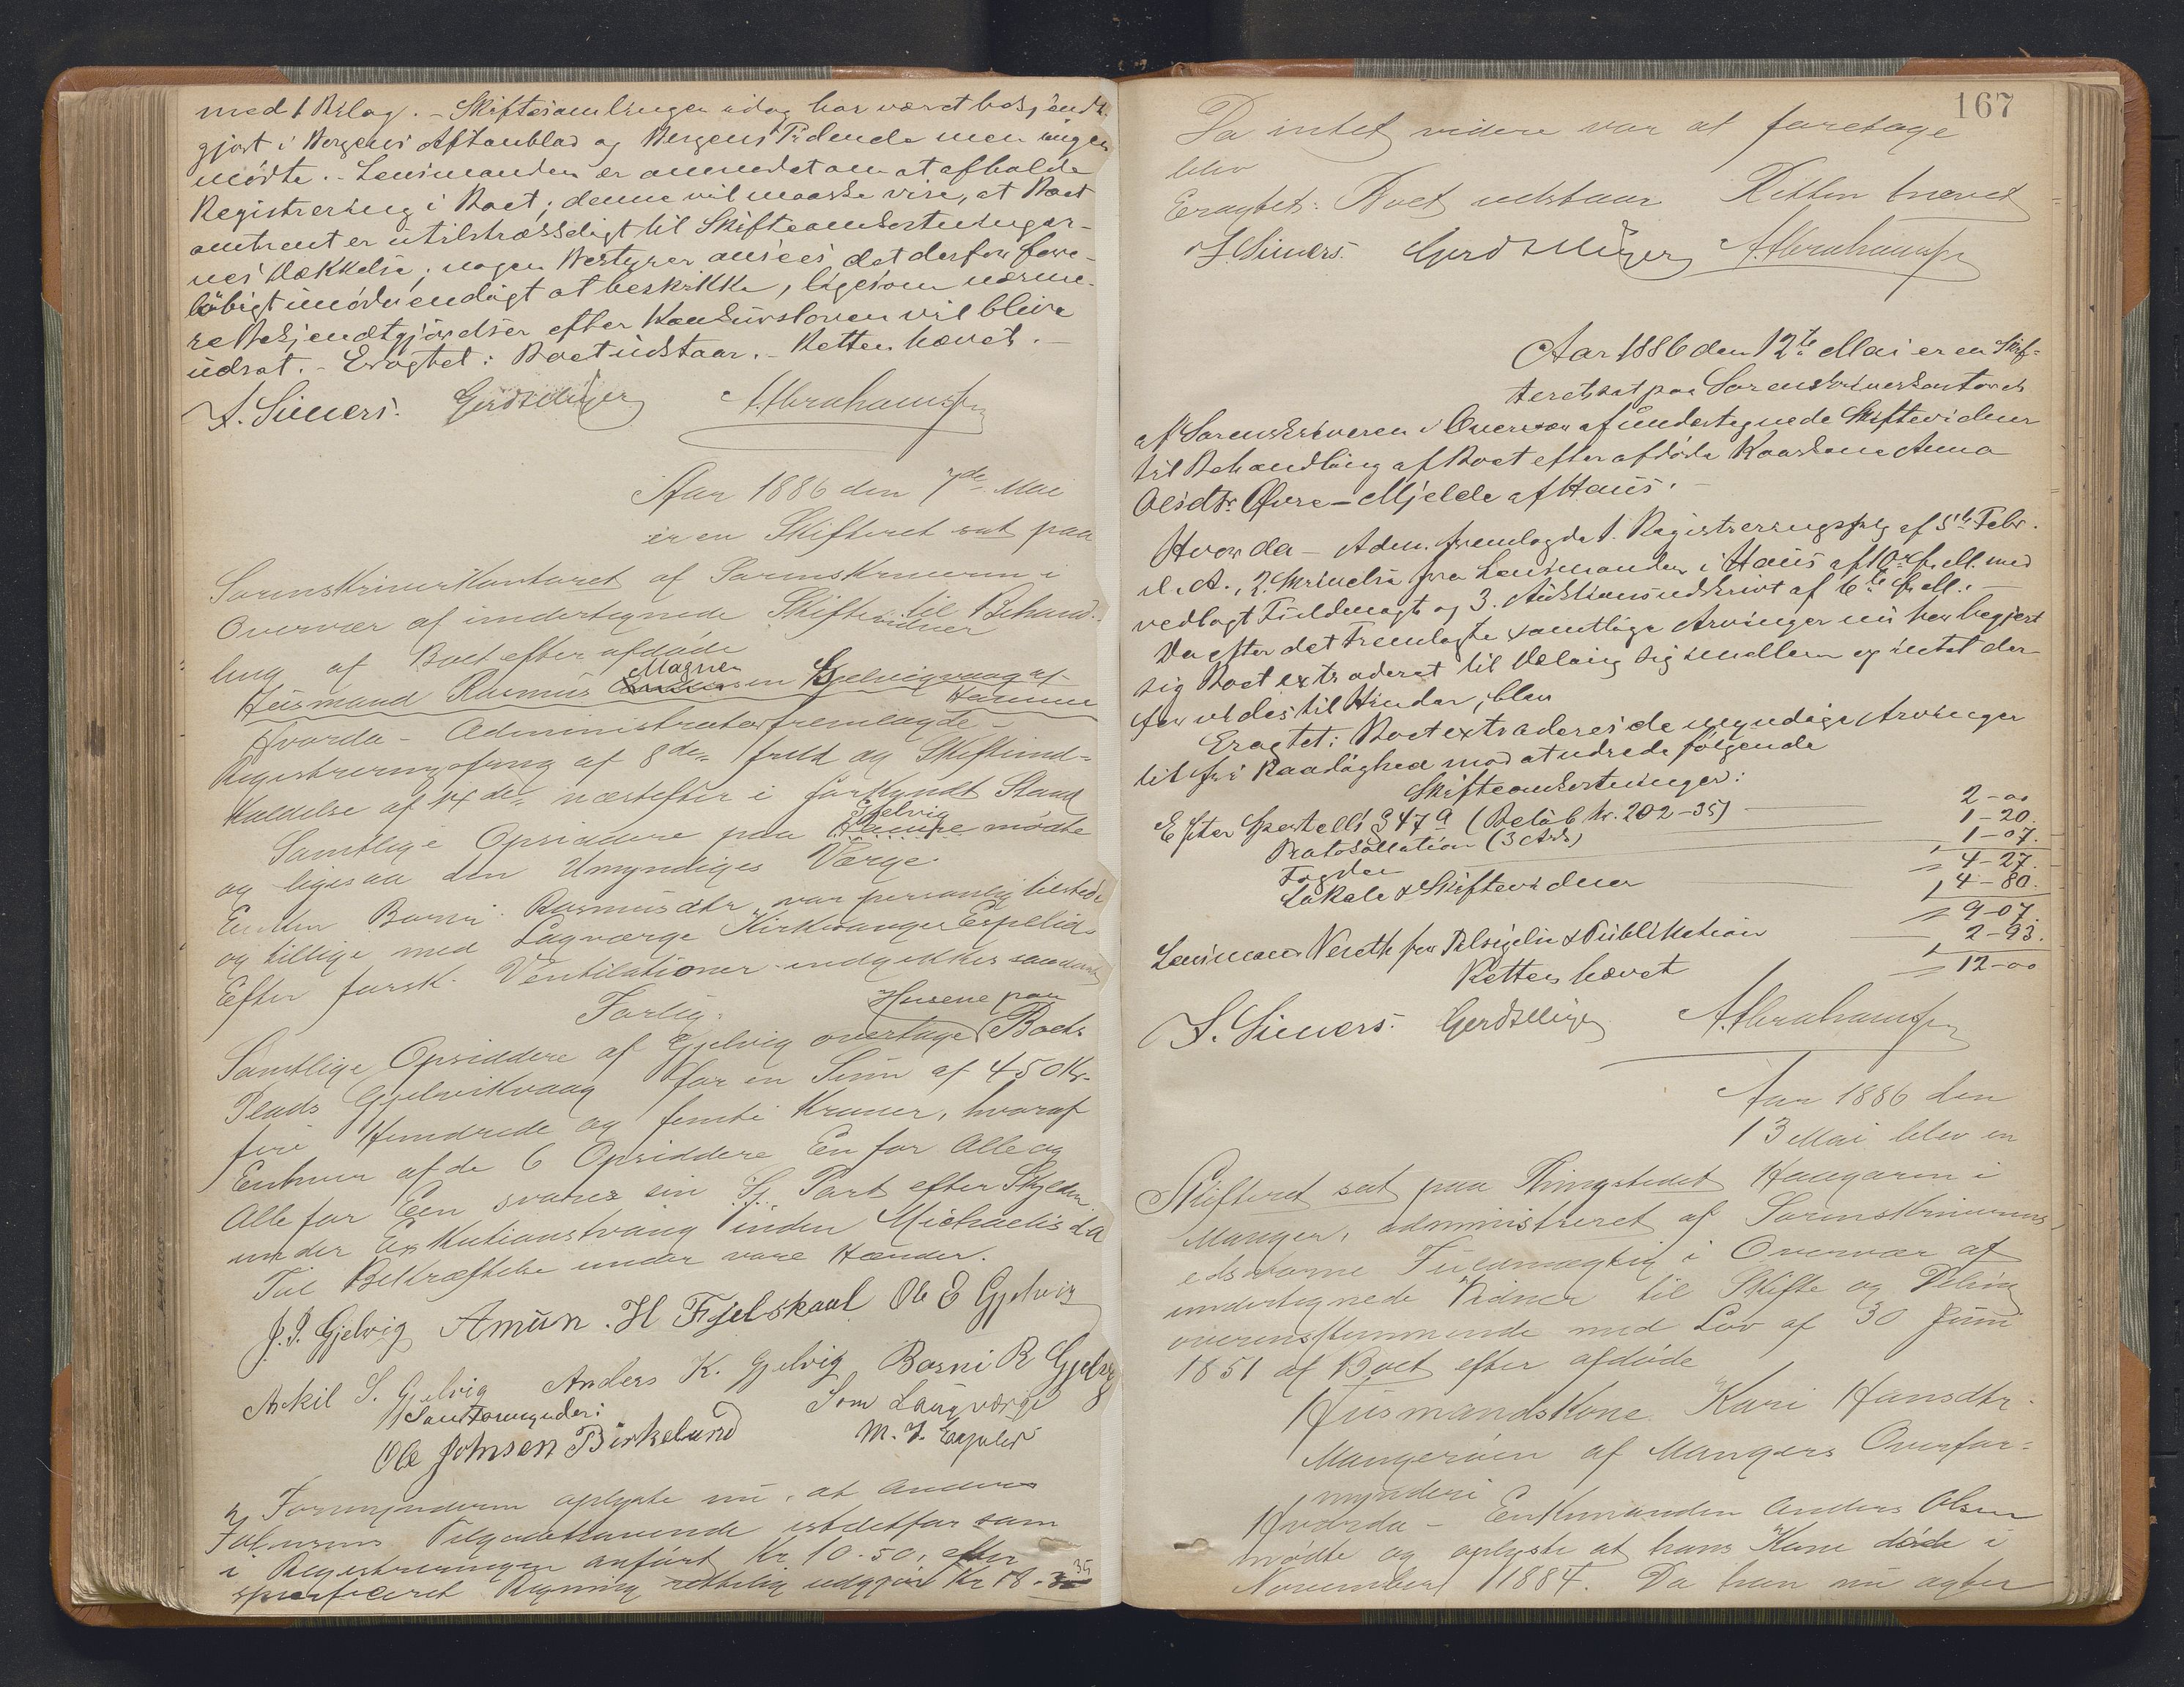 med 1 Bilag. - Skiftesamlingen idag har været bekjendt-
gjort i Bergens Aftenblad og Bergens Tidende men ingen
mødte. - Lensmanden er anmodet om at afholde
Registrering i Boet; denne vil maaske vise, at Boet
omtrent er utilstrækkeligt til Skifteomkostninger-
nes Dækkelse; nogen Bestyrer ansees det derfor fore-
løbigt unødvendigt at beskikke, ligesom nærme-
re Bekjendtgjørelser efter Konkursloven vil blive
udsat. - Eragtet: Boet udstaar. - Retten hævet. -
S. Siewers. Gerdt Meyer A. Abrahamsen
Aar 1886 den 7de Mai
er en Skifteret sat paa
Sorenskriverkontoret af Sorenskriveren i
Overvær af undertegnede Skiftevidner til Behand-
ling af Boet efter afdøde
Husmand Rasmus Magnesen Gjelvigvaag af
Hamre
Hvorda - Administrator fremlagde -
Registreringsforrg af 8de f. M. og Skifteind-
kaldelse af 14de næstefter i forkyndt Stand
Samtlige Opsiddere paa Gjelvig mødte
og ligesaa den Umyndiges Værge.
Enken Barni Rasmusdtr var personlig tilstede
og tillige med Lagværge Kirkesanger Espelid.
Efter forsk. Ventilationer indgikkes saadant
Forlig:
Samtlige Opsiddere af Gjelvig overtage Husene paa Boets
Plads Gjelvikvaag for en Sum af 450 Kr.
fire Hundrede og femti Kroner, hvoraf
Enhver af de 6 Opsiddere En for Alle og
Alle for Een svarer sin Part efter Skylden
under Exekutionstvang inden Michaelis d. A
Til Bekræftelse under vore Hænder.
J. J. Gjelvig Amun. H Fjelskaal Ole E Gjelvig
Askil S. Gjelvig Anders K. Gjelvig Barni R Gjelvig
Som Formynder: Som Laugværge
Ole Johnsen Birkelund M. J. Espelid
Formynderen oplyste nu, at Anders
Tilgodehavende istedetfor som
i Registreringen anført Kr 10.50, efter
specificeret Regning rettelig udgjør Kr 18.35
167
Da intet videre var at foretage
blev
Eragtet: Boet udstaar Retten hævet
S Siewers. Gerdt Meyer A. Abrahamsen
Aar 1886 den 12te Mai er en Skif-
teret sat paa Sorenskriverkontoret
af Sorenskriveren i Overvær af undertegnede Skiftevidner
til Behandling af Boet efter afdøde Kaarkone Anna
Olsdtr. Øvre-Mjelde af Haus.
Hvorda - Adm. fremlagde 1. Registreringsforrg af 5te Febr.
d. A., 2. Skrivelse fra Lensmanden i Haus af 10de f. M. med
vedlagt Fuldmagt og 3. Auktionsudskrivt af 6te f. M. -
Da efter det Fremlagte samtlige Arvinger nu har begjert
sig Boet extraderet til Deling sig imellem og intet der-
for vides til Hinder, blev
Eragtet: Boet extraderes de myndige Arvinger
til fri Raadighed mod at udrede følgende
Skifteomkostninger:
Efter Sportell's § 47 a (Beløb Kr. 202-35) 2-00
Protokollation (3 Ark) 1-20.
Fogden 1-07.
= 4-27.
Lokale & Skiftevidner 4-80.
= 9-07.
Lensmand Nereth for Tilsigelse & Publikation 2-93.
= 12-00
Retten hævet
S. Siewers. Gerdt Meyer A. Abrahamsen
Aar 1886 den
13 Mai blev en
Skifteret sat paa Thingstedet Haugaren i
Manger, administreret af Sorenskriverens
edsvorne Fuldmægtig i Overvær af
undertegnede Vidner til Skifte og Deling
overensstemmende med Lov af 30 Juni
1851 af Boet efter afdøde
Husmandskone Kari Hansdtr.
Mangerøen af Mangers Overfor-
mynderi
Hvorda - Enkemanden Anders Olsen
mødte og oplyste at hans Kone døde i
November 1884. Da han nu agter